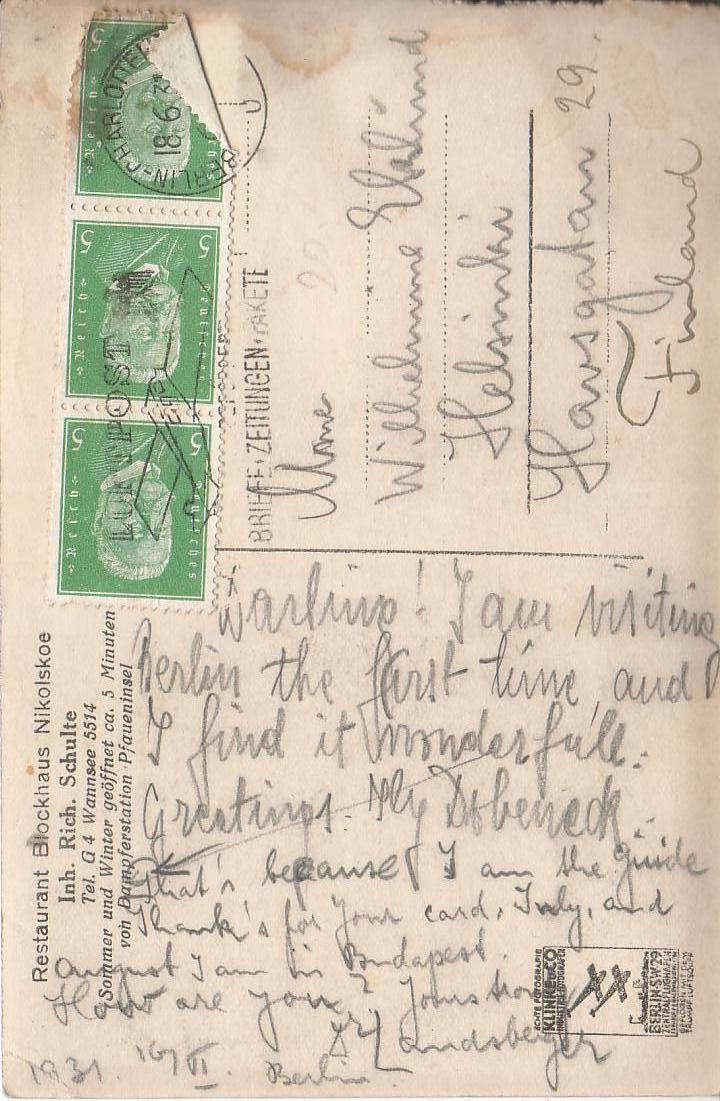 Restaurant Blockhaus Nikolskoe
Inh. Rich. Schulte
Tel. G 4 Wannsee 5514
Sommer und Winter geöffnet ca. 5 Minuten
von Dampferstation Pfaueninsel
Darling! I am visiting
Berlin the first time, and
I find it wonderfull.
Greetings. Dobeneck.
That's because I am the guide
Thank's for your card, July, and
August I am in Budapest.
How are you?
Landsberger
1931. 16/VI
Berlin.
5 Deutsches Reich 5
5 Deutsches Reich 5
5 Deutsches Reich 5
BERLIN-CHARLOTTE
18.6.
LUFTPOST
BRIEFE·ZEITUNGEN·PAKETE
Wilhelmine
Helsinki
Havsgatan 29.
Finland
ECHTE FOTOGRAFIE
KLINKE & CO
BERLIN SW 29
ZENTRALFLUGHAFEN